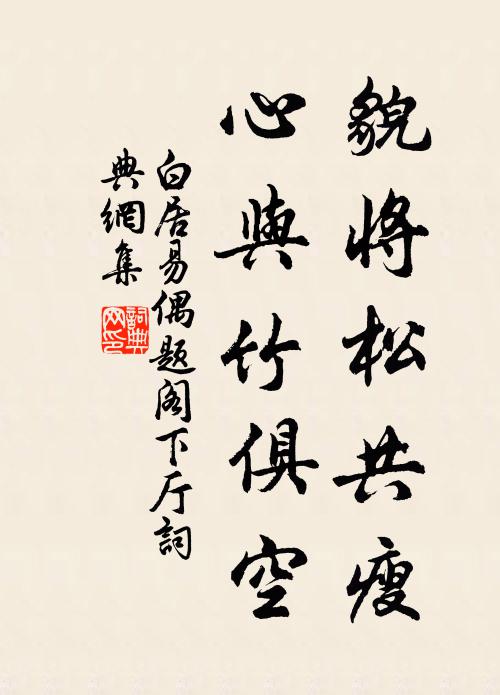 貌將松共瘦
心與竹俱空
白居易偶题阁下厅詞
典網集
詞典
网印